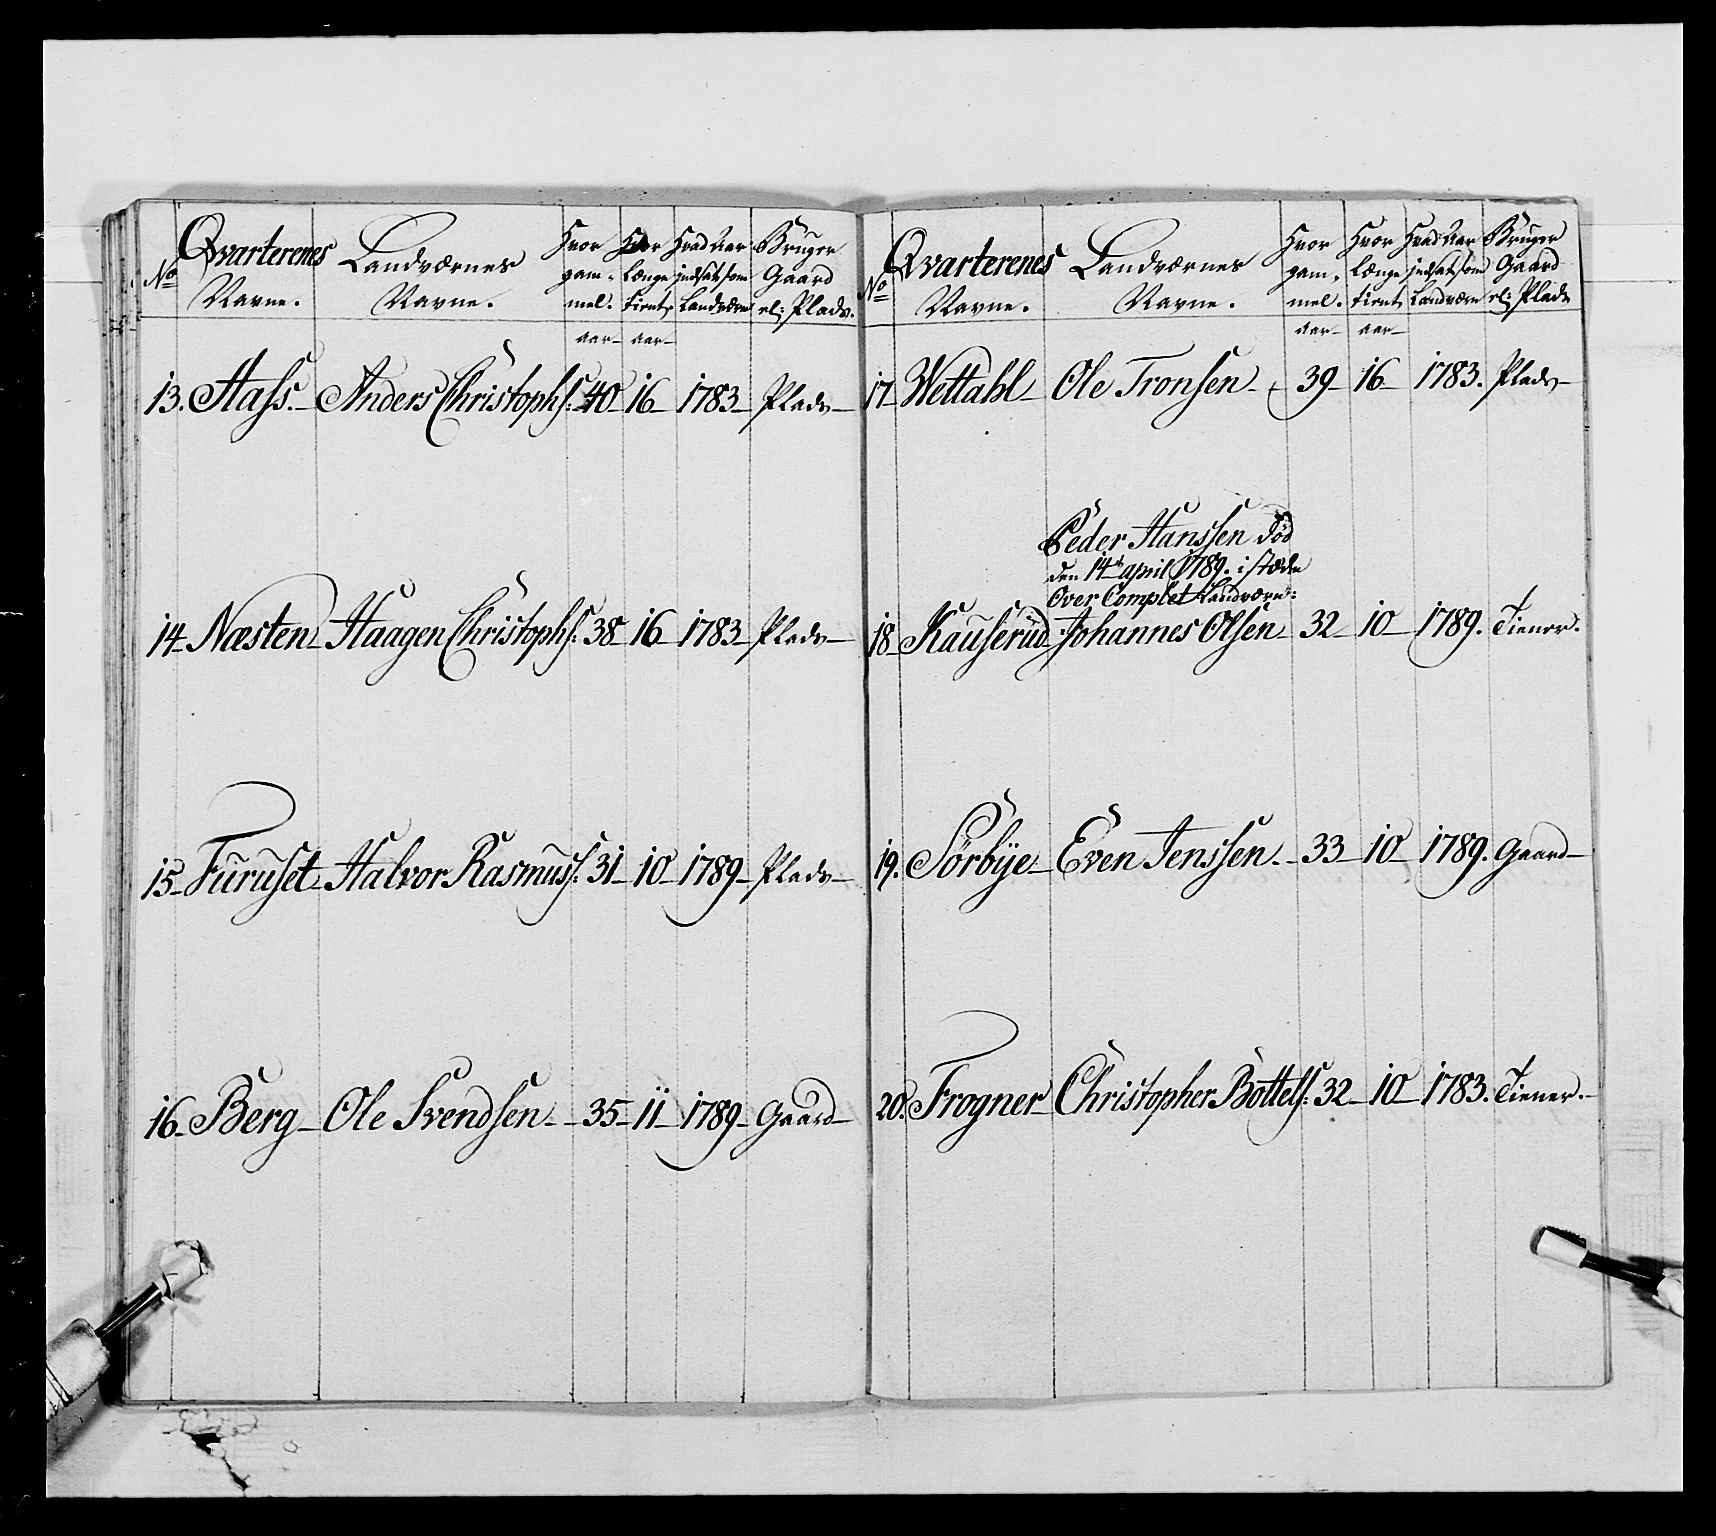 No Qvarterenes Navne. Landværnes Navne. Hvor gam= mel. Hvor Længe tient Hvad Aar indsat som Landværn Bruger Gaard el: Plads.
aar– aar–
13. Hafs. – Anders Christophs: 40– 16– 1783– Plads–
14– Næsten– Haagen Christophs: 38– 16– 1783– Plads–
15– Furuset– Halvor Rasmuss: 31– 10– 1789– Plads–
16– Berg– Ole Svendsen– 35– 11– 1789– Gaard–
No Qvarterenes Navne. Landværnes Navne. Hvor gam= mel. Hvor Længe tient Hvad Aar indsat som Landværn Bruger Gaard el: Plads
aar– aar–
17– Wettahl– Ole Tronsen– 39– 16– 1783. Plads–
Peder Hanssen død
den 14de april 1789. i stæde
Over Complet Landværn:
18– Kauserud– Johannes Olsen– 32– 10– 1789. Tiener.
19. Sörbye– Even Jenssen– 33– 10– 1789. Gaard–
20. Frogner– Christopher Bottels: 32– 10– 1783. Tiener.–